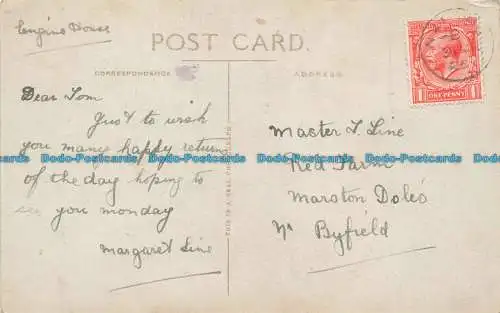 Engine House
POST CARD.
CORRESPONDENCE
ADDRESS
ONE PENNY
Dear Tom
Just to wish
you many happy returns
of the day hoping to
see you monday
Margaret Line
THIS IS A REAL PHOTOGRAPH
Master T. Line
Red Farm
Marston Doles
Nr Byfield
Dodo-Postcards Dodo-Postcards Dodo-Postcards Dodo-Postcards